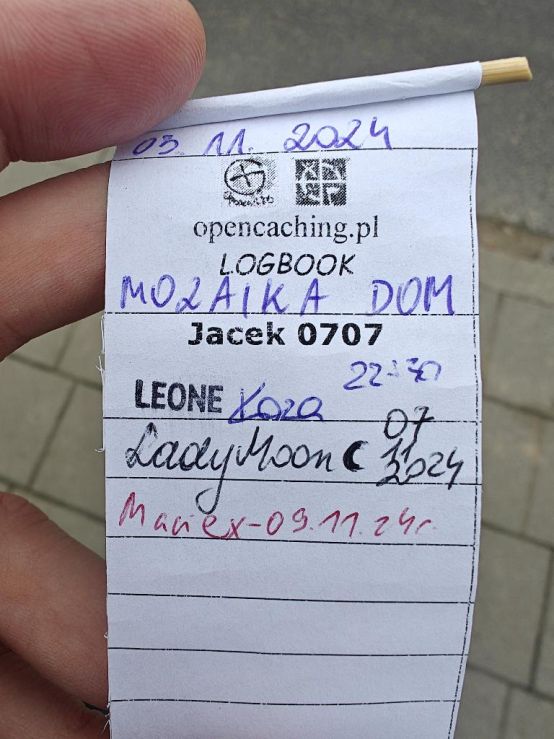 03. 11. 2024
opencaching.pl
LOGBOOK
MOZAIKA DOM
Jacek 0707
22:30
LEONE Koza
LadyMoon 07
11
2024
Maciex-09.11.24r.